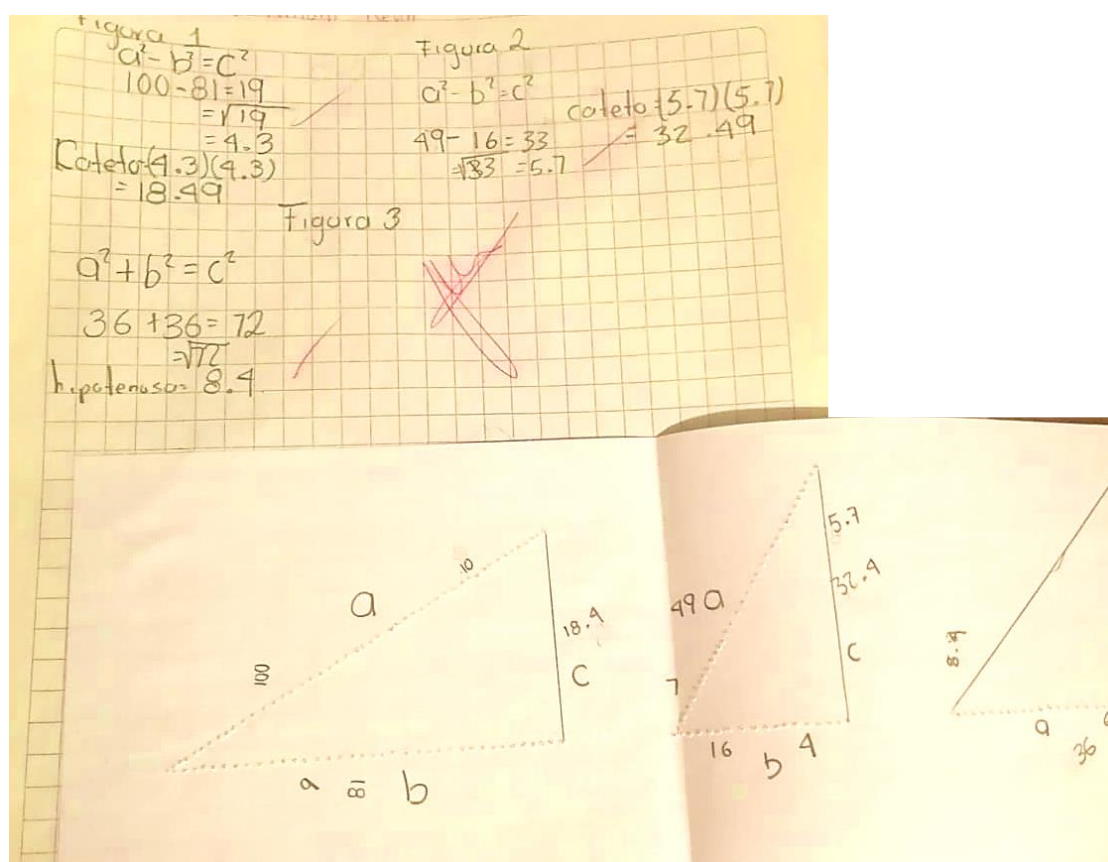 Figura 1
a² - b² = c²
100 - 81 = 19
= √19
= 4.3
Cateto=(4.3)(4.3)
= 18.49
Figura 2
a² - b² = c²
49 - 16 = 33
=√33 = 5.7
cateto=(5.7)(5.7)
= 32.49
Figura 3
a² + b² = c²
36 + 36 = 72
=√72
hipotenusa= 8.4
10
a
100
18.4
C
9
81
b
5.7
49 a
32.4
C
7
16
b
4
8.4
a
36